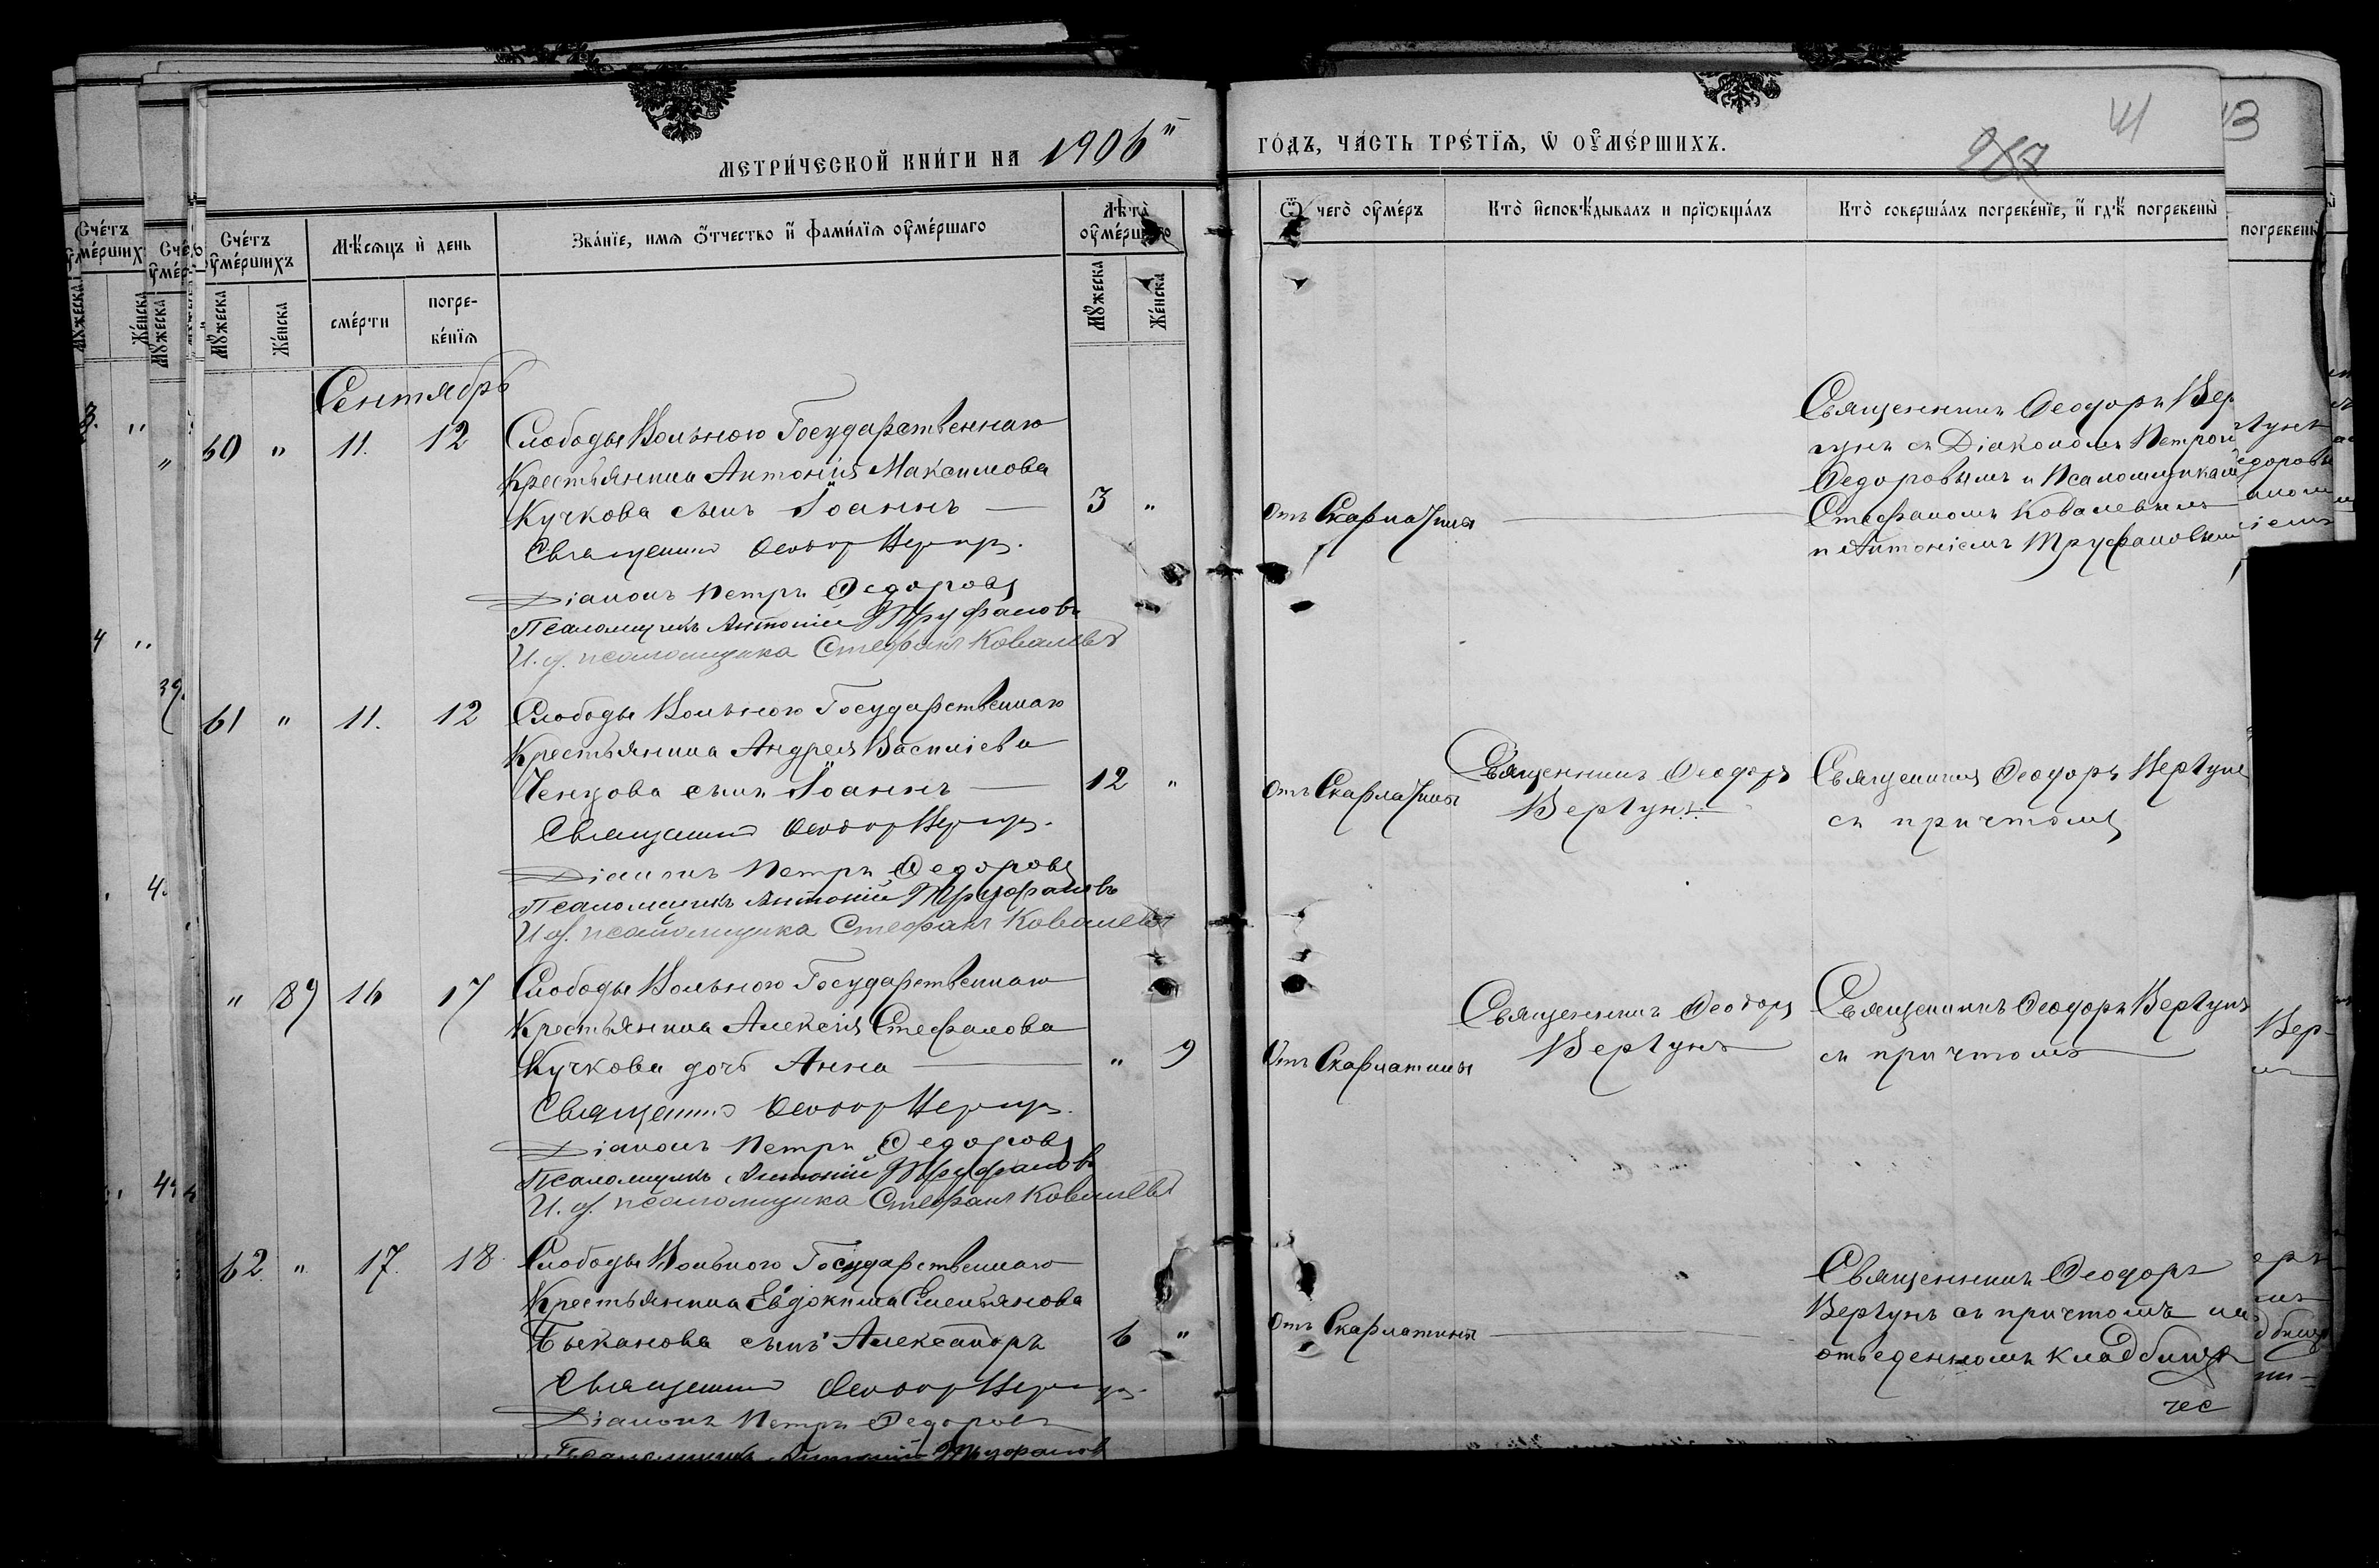 МЕТРИ́ЧЕСКОЙ КНИ́ГИ НА 1906й
ГО́ДЪ, ЧА́СТЬ ТРЕ́ТЇѦ, Ѡ҆ ОУ҆МЕ́РШИХЪ.
41
13
267
Сче́тъ оу҆ме́ршихъ
Мѣ́сѧцъ и҆ день
Зва́нїе, имѧ ѻ҆́тчество и҆ фами́лїѧ оу҆ме́ршаго
Лѣ́та оу҆ме́ршаго
Мꙋ́жеска
Же́нска
сме́рти
погре-
бе́нїѧ
Мꙋ́жеска
Же́нска
Ѿ чегѡ̀ оу҆ме́ръ
Кто̀ и҆сповѣ́дывалъ и прїѡбща́лъ
Кто̀ соверша́лъ погребе́нїе, и҆ гдѣ̀ погребены̀
Сентябрь
60 " 11. 12
Слободы Вольного Государственнаго
Крестьянина Антонія Максимова
Кучкова сынъ Іоаннъ
3 "
Священник Феодор Вергун.
Діаконъ Петръ Федоровъ
Псаломщикъ Антоній Труфановъ
И. д. псаломщика Стефанъ Ковалевъ
Отъ Скарлатины
Священникъ Феодоръ Вер
гунъ съ Діакономъ Петром
Федоровымъ и Псаломщиками
Стефаномъ Ковалевымъ
и Антоніемъ Труфановым
61 " 11. 12
Слободы Вольного Государственнаго
Крестьянина Андрея Василіева
Ченцова сынъ Іоаннъ
12 "
Священник Феодор Вергун.
Діаконъ Петръ Федоровъ
Псаломщикъ Антоній Труфановъ
И. д. псаломщика Стефанъ Ковалевъ
Отъ Скарлатины
Священникъ Феодоръ
Вергунъ
Священникъ Феодоръ Вергунъ
съ причтомъ
" 89 16 17
Слободы Вольного Государственнаго
Крестьянина Алексія Стефанова
Кучкова дочь Анна
" 9
Священник Феодор Вергун.
Діаконъ Петръ Федоровъ
Псаломщикъ Антоній Труфановъ
И. д. псаломщика Стефанъ Ковалевъ
Отъ Скарлатины
Священникъ Феодоръ
Вергунъ
Священникъ Феодоръ Вергунъ
съ причтомъ
62. " 17. 18.
Слободы Вольного Государственнаго
Крестьянина Евдокима Емельянова
Быканова сынъ Александръ
6 "
Священник Феодор Вергун.
Діаконъ Петръ Федоровъ
Псаломщикъ Антоній Труфанов
Отъ Скарлатины
Священникъ Феодоръ
Вергунъ съ причтомъ на
отведенномъ кладбищѣ